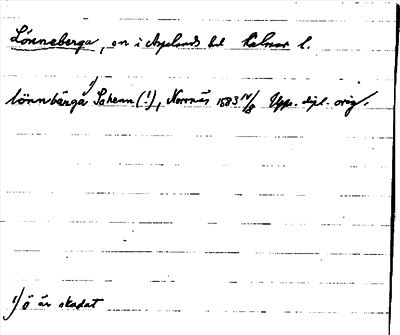 Lönneberga, sn i Aspelands hd Kalmar l.
lönnbärga¹⁾ Sokenn (!), Norrnäs 1583 14/8 Upps. dipl. orig.
¹⁾ ö är skadat